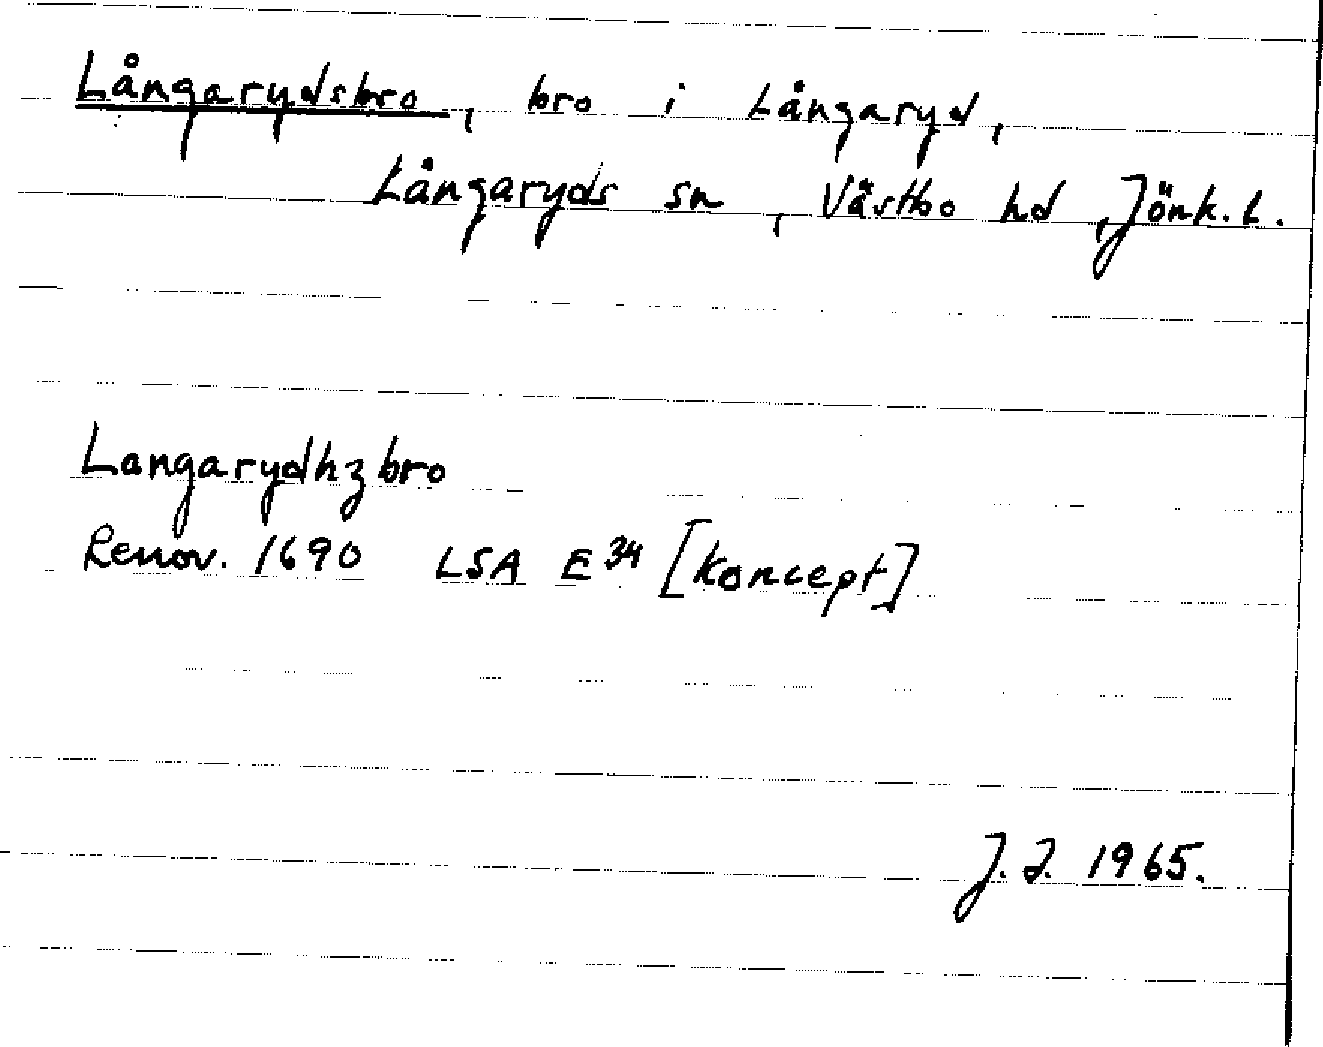 Långarydsbro, bro i Långaryd,
Långaryds sn, Västbo hd, Jönk. L.
Langarydhzbro
Renov. 1690 LSA E 34 [Koncept]
J. J. 1965.